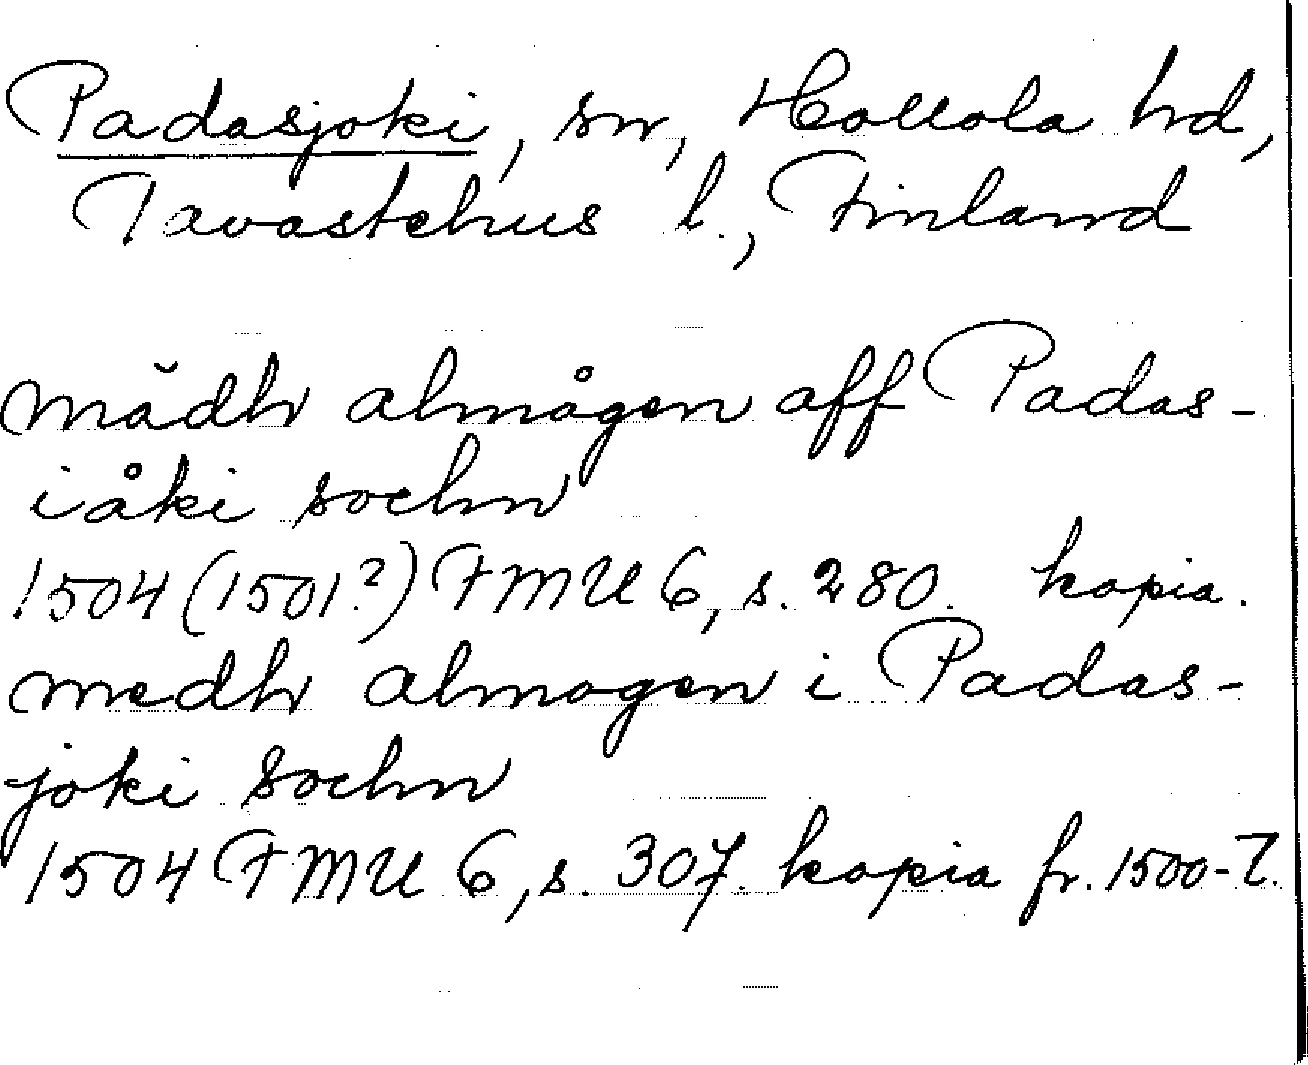 Padasjoki, sn, Hollola hd,
Tavastehus l., Finland
mădh almågen aff Padas-
iåki sochn
1504 (1501?) FMU 6, s. 280. kopia.
medh almogen i Padas-
joki sochn
1504 FMU 6, s. 307. kopia fr. 1500-t.